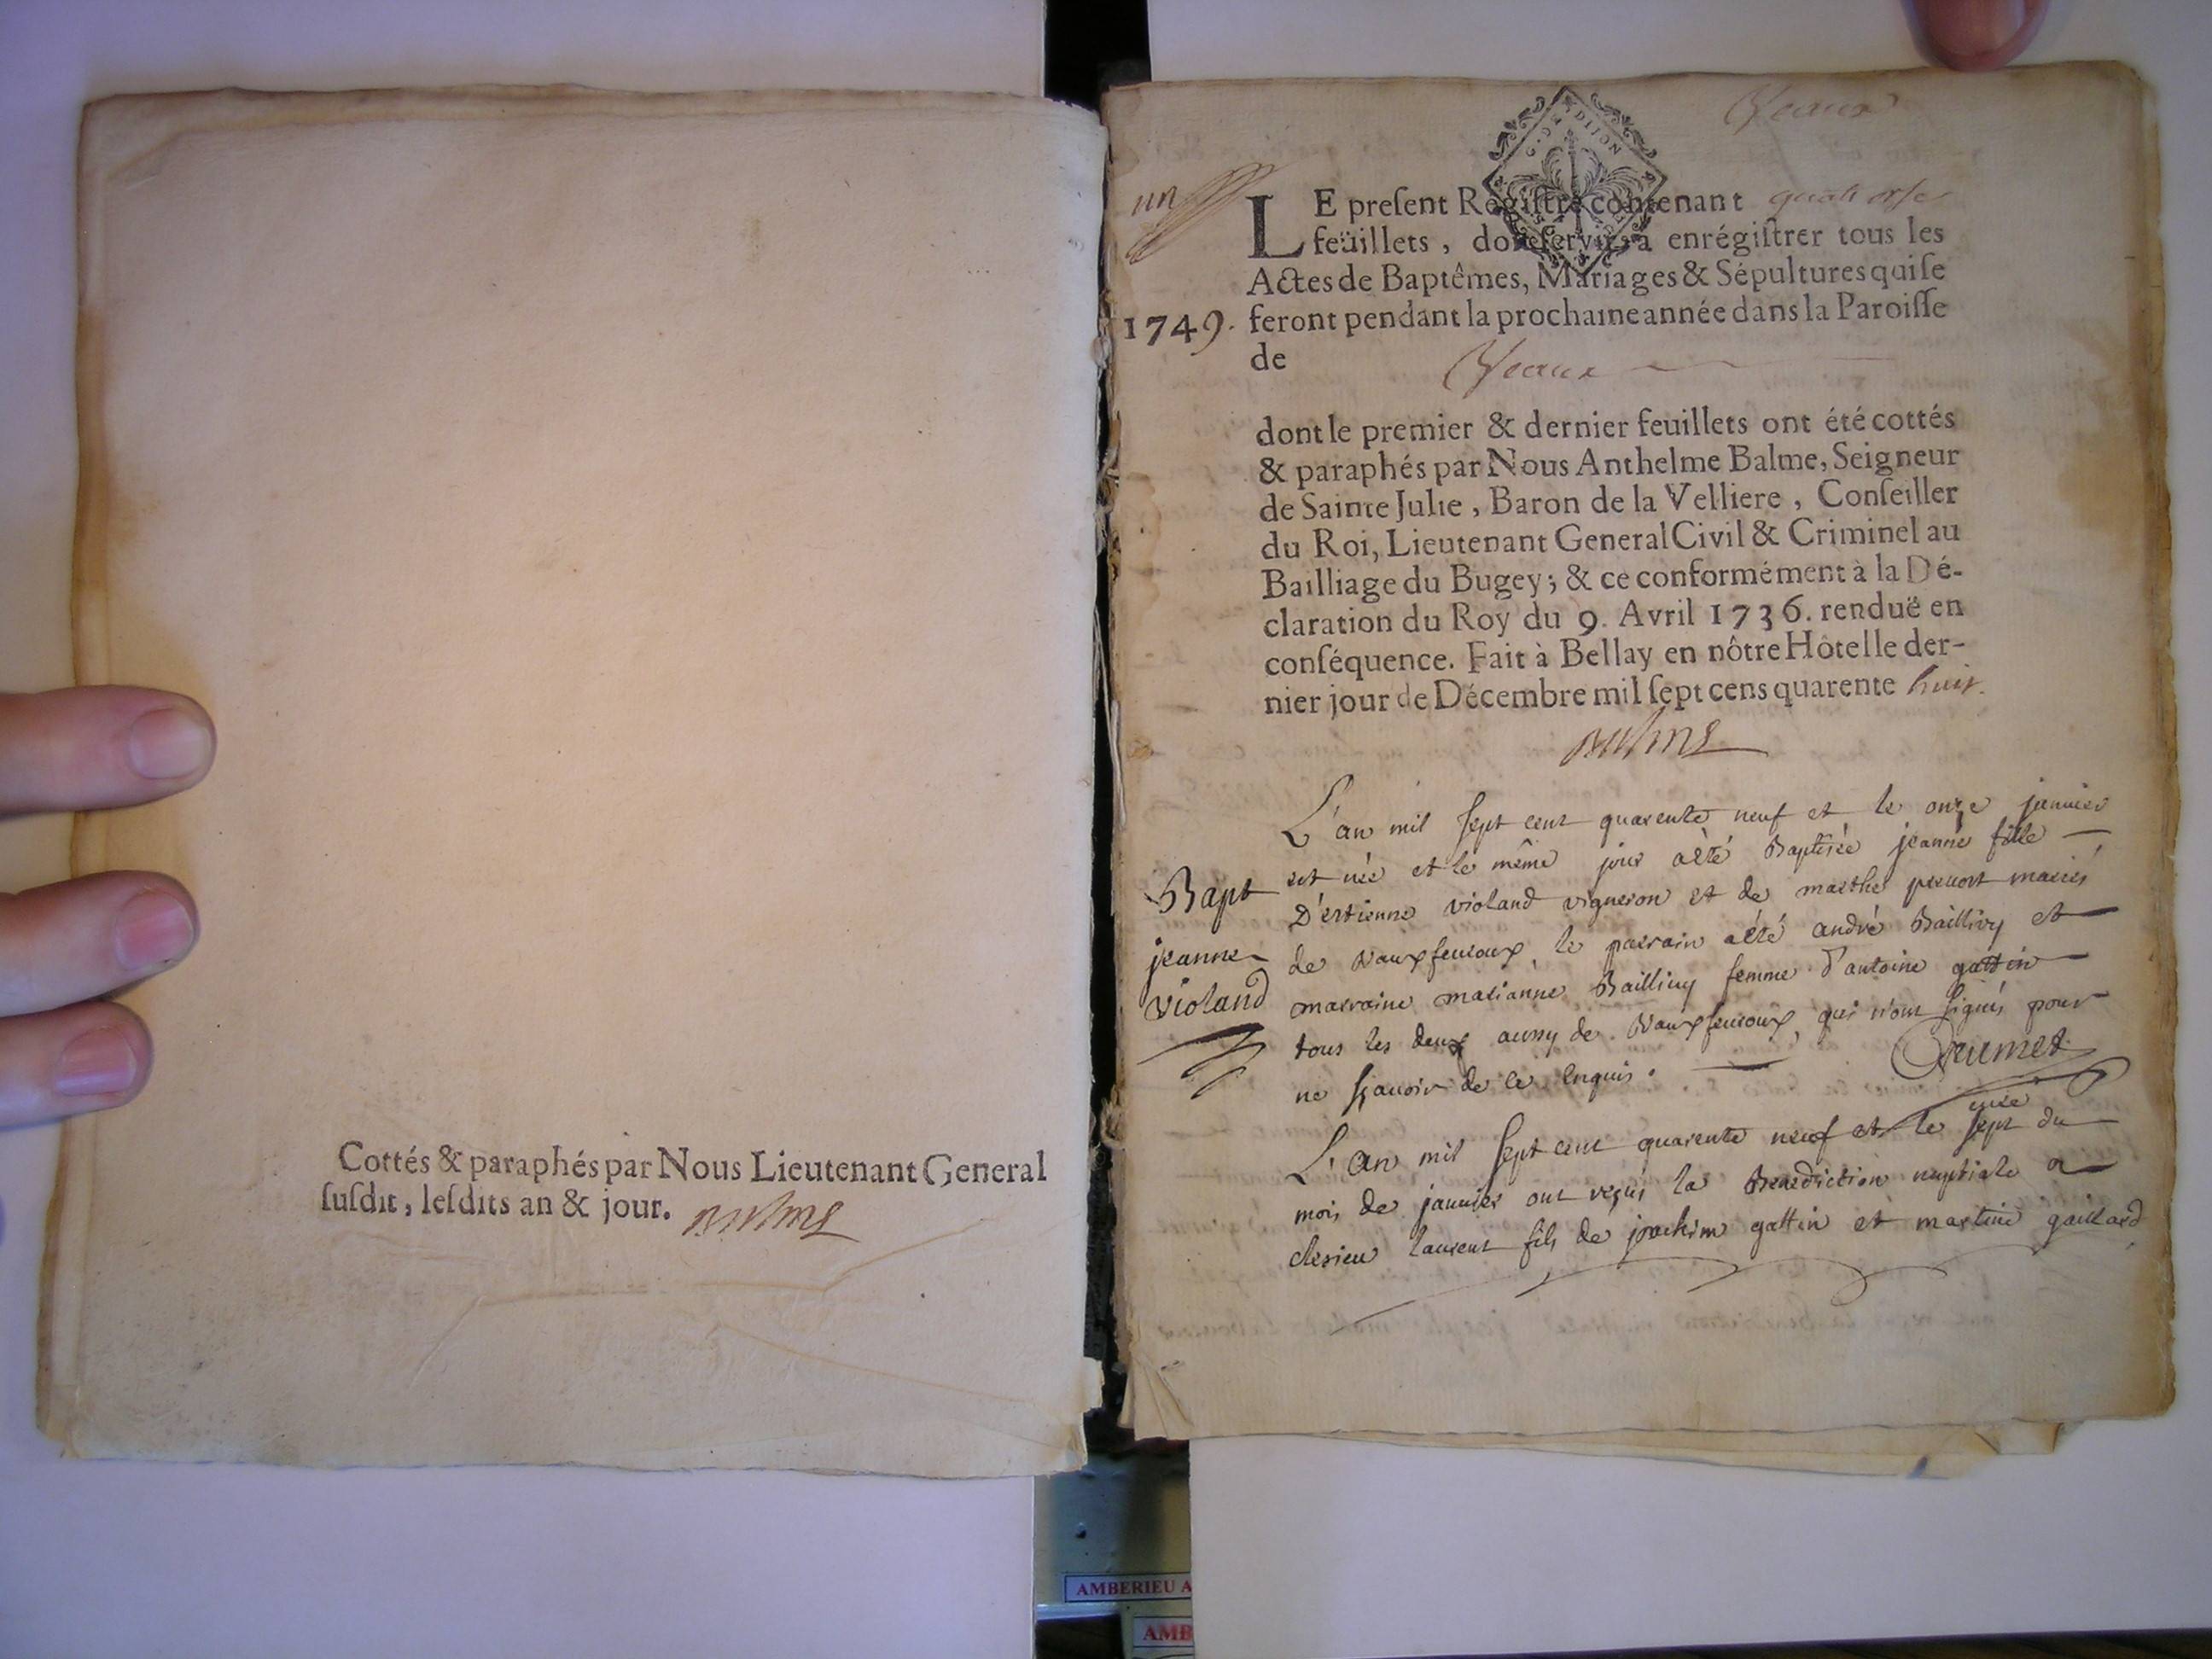 Cottés & paraphés par Nous Lieutenant General
ſuſdit, leſdits an & jour. Balme
un
LE preſent Regiſtre contenant quatorſe
feüillets, doit ſervir à enrégiſtrer tous les
Actes de Baptêmes, Mariages & Sépultures qui ſe
1749. feront pendant la prochaine année dans la Paroiſſe
de
dont le premier & dernier feuillets ont été cottés
& paraphés par Nous Anthelme Balme, Seigneur
de Sainte Julie, Baron de la Velliere, Conſeiller
du Roi, Lieutenant General Civil & Criminel au
Bailliage du Bugey; & ce conformément à la Dé-
claration du Roy du 9. Avril 1736. renduë en
conſéquence. Fait à Bellay en nôtre Hôtel le der-
nier jour de Décembre mil ſept cens quarente huit.
Balme
L'an mil sept cent quarente neuf et le onze janvier
est née et le même jour a été Baptisée jeanne fille
D'estienne violand vigneron et de marthe mariés
de vauxfevroux, le parrain a été andré Baillivy et
marraine marianne Baillivy femme d'antoine gattin
tous les deux aussy de vauxfevroux, qui n'ont signés pour
ne sçavoir de ce enquis.
Bapt
jeanne
violand
curé
L'an mil sept cent quarente neuf et le sept du
mois de janvier ont reçus la Benediction nuptiale
laurent fils de joachim gattin et martine gaillard
AMBERIEU A
AMB